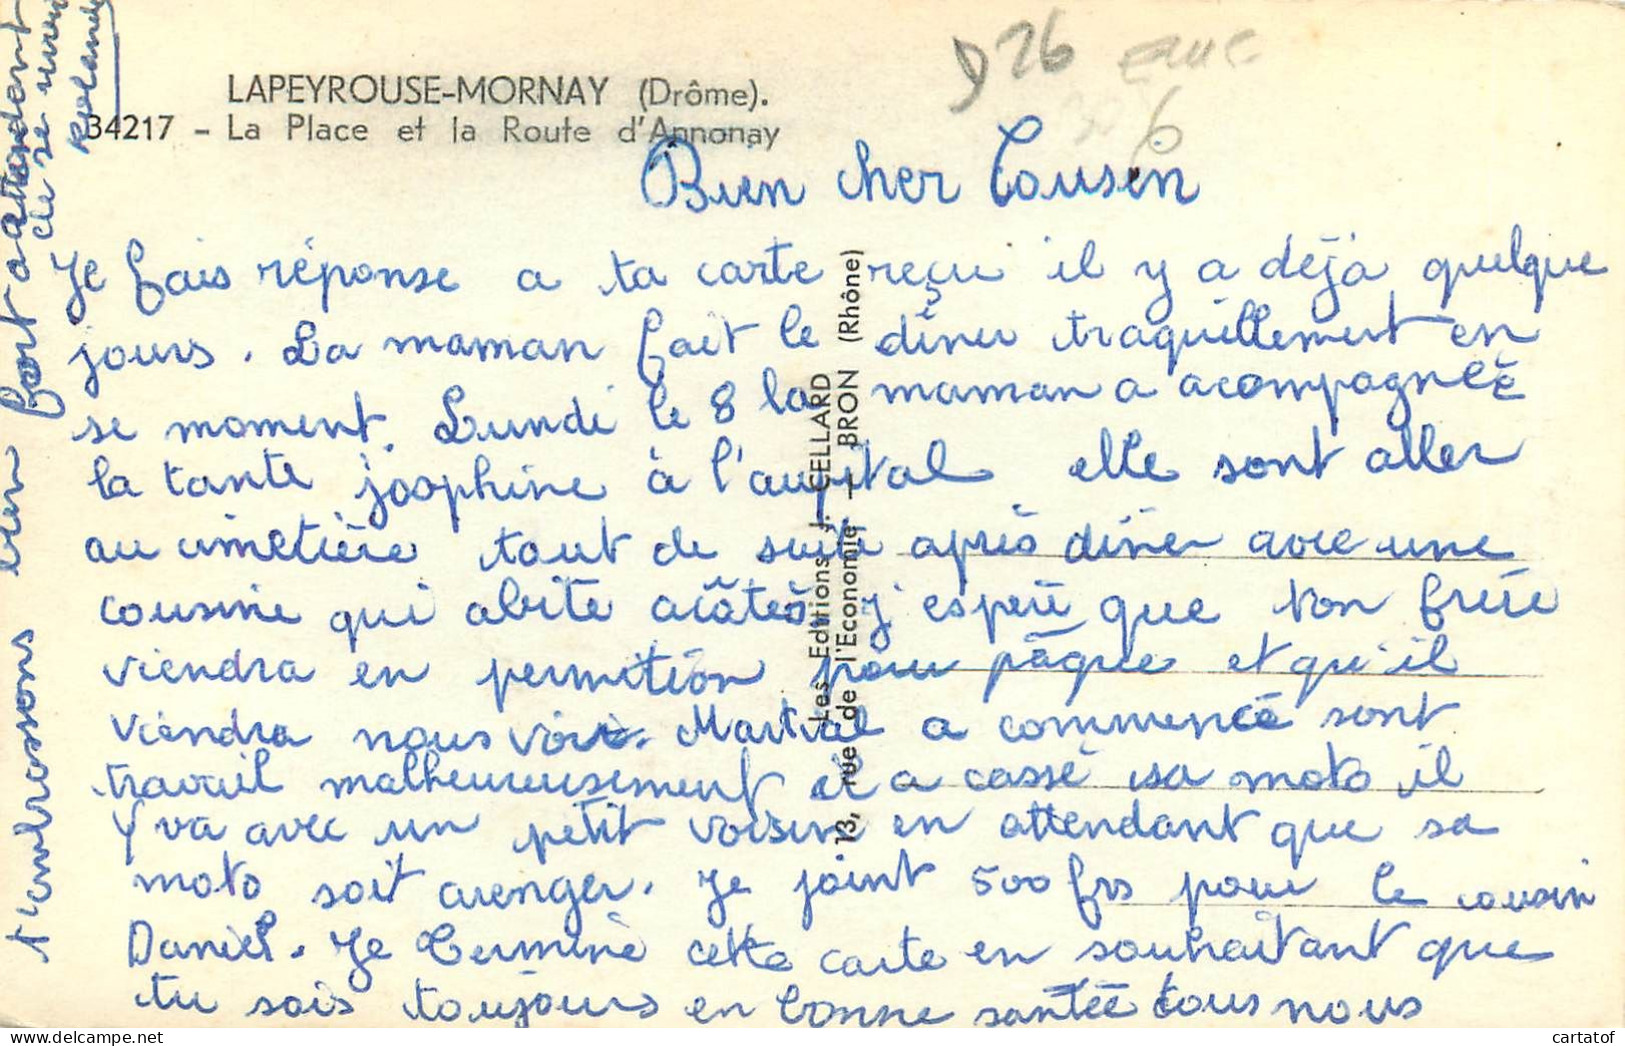 LAPEYROUSE-MORNAY (Drôme).
34217 - La Place et la Route d'Annonay
D 26
6
Bien cher Cousin
Je fais réponse a ta carte reçu il y a déjà quelque
jours. La maman fait le dîner traquillement en
se moment. Lundi le 8 la maman a acompagnéé
la tante joophine à l'aupital elle sont aller
au cimetière tout de suite après dîner avec une
cousine qui abite acâteô j'espere que ton frère
viendra en permition pour pâque et qu'il
viendra nous voir. Martial a commencé sont
travail malheureusement il a cassé sa moto il
y va avec un petit voisin en attendant que sa
moto soit arenger. Je joint 500 frs pour le cousin
Daniel. Je termine cette carte en souhaitant que
tu sois toujours en bonne santée tous nous
t'embrassons bien fort attendant
de se revoir
Rolande
Les Editions J. CELLARD
13, rue de l'Economie - BRON (Rhône)
cartatof